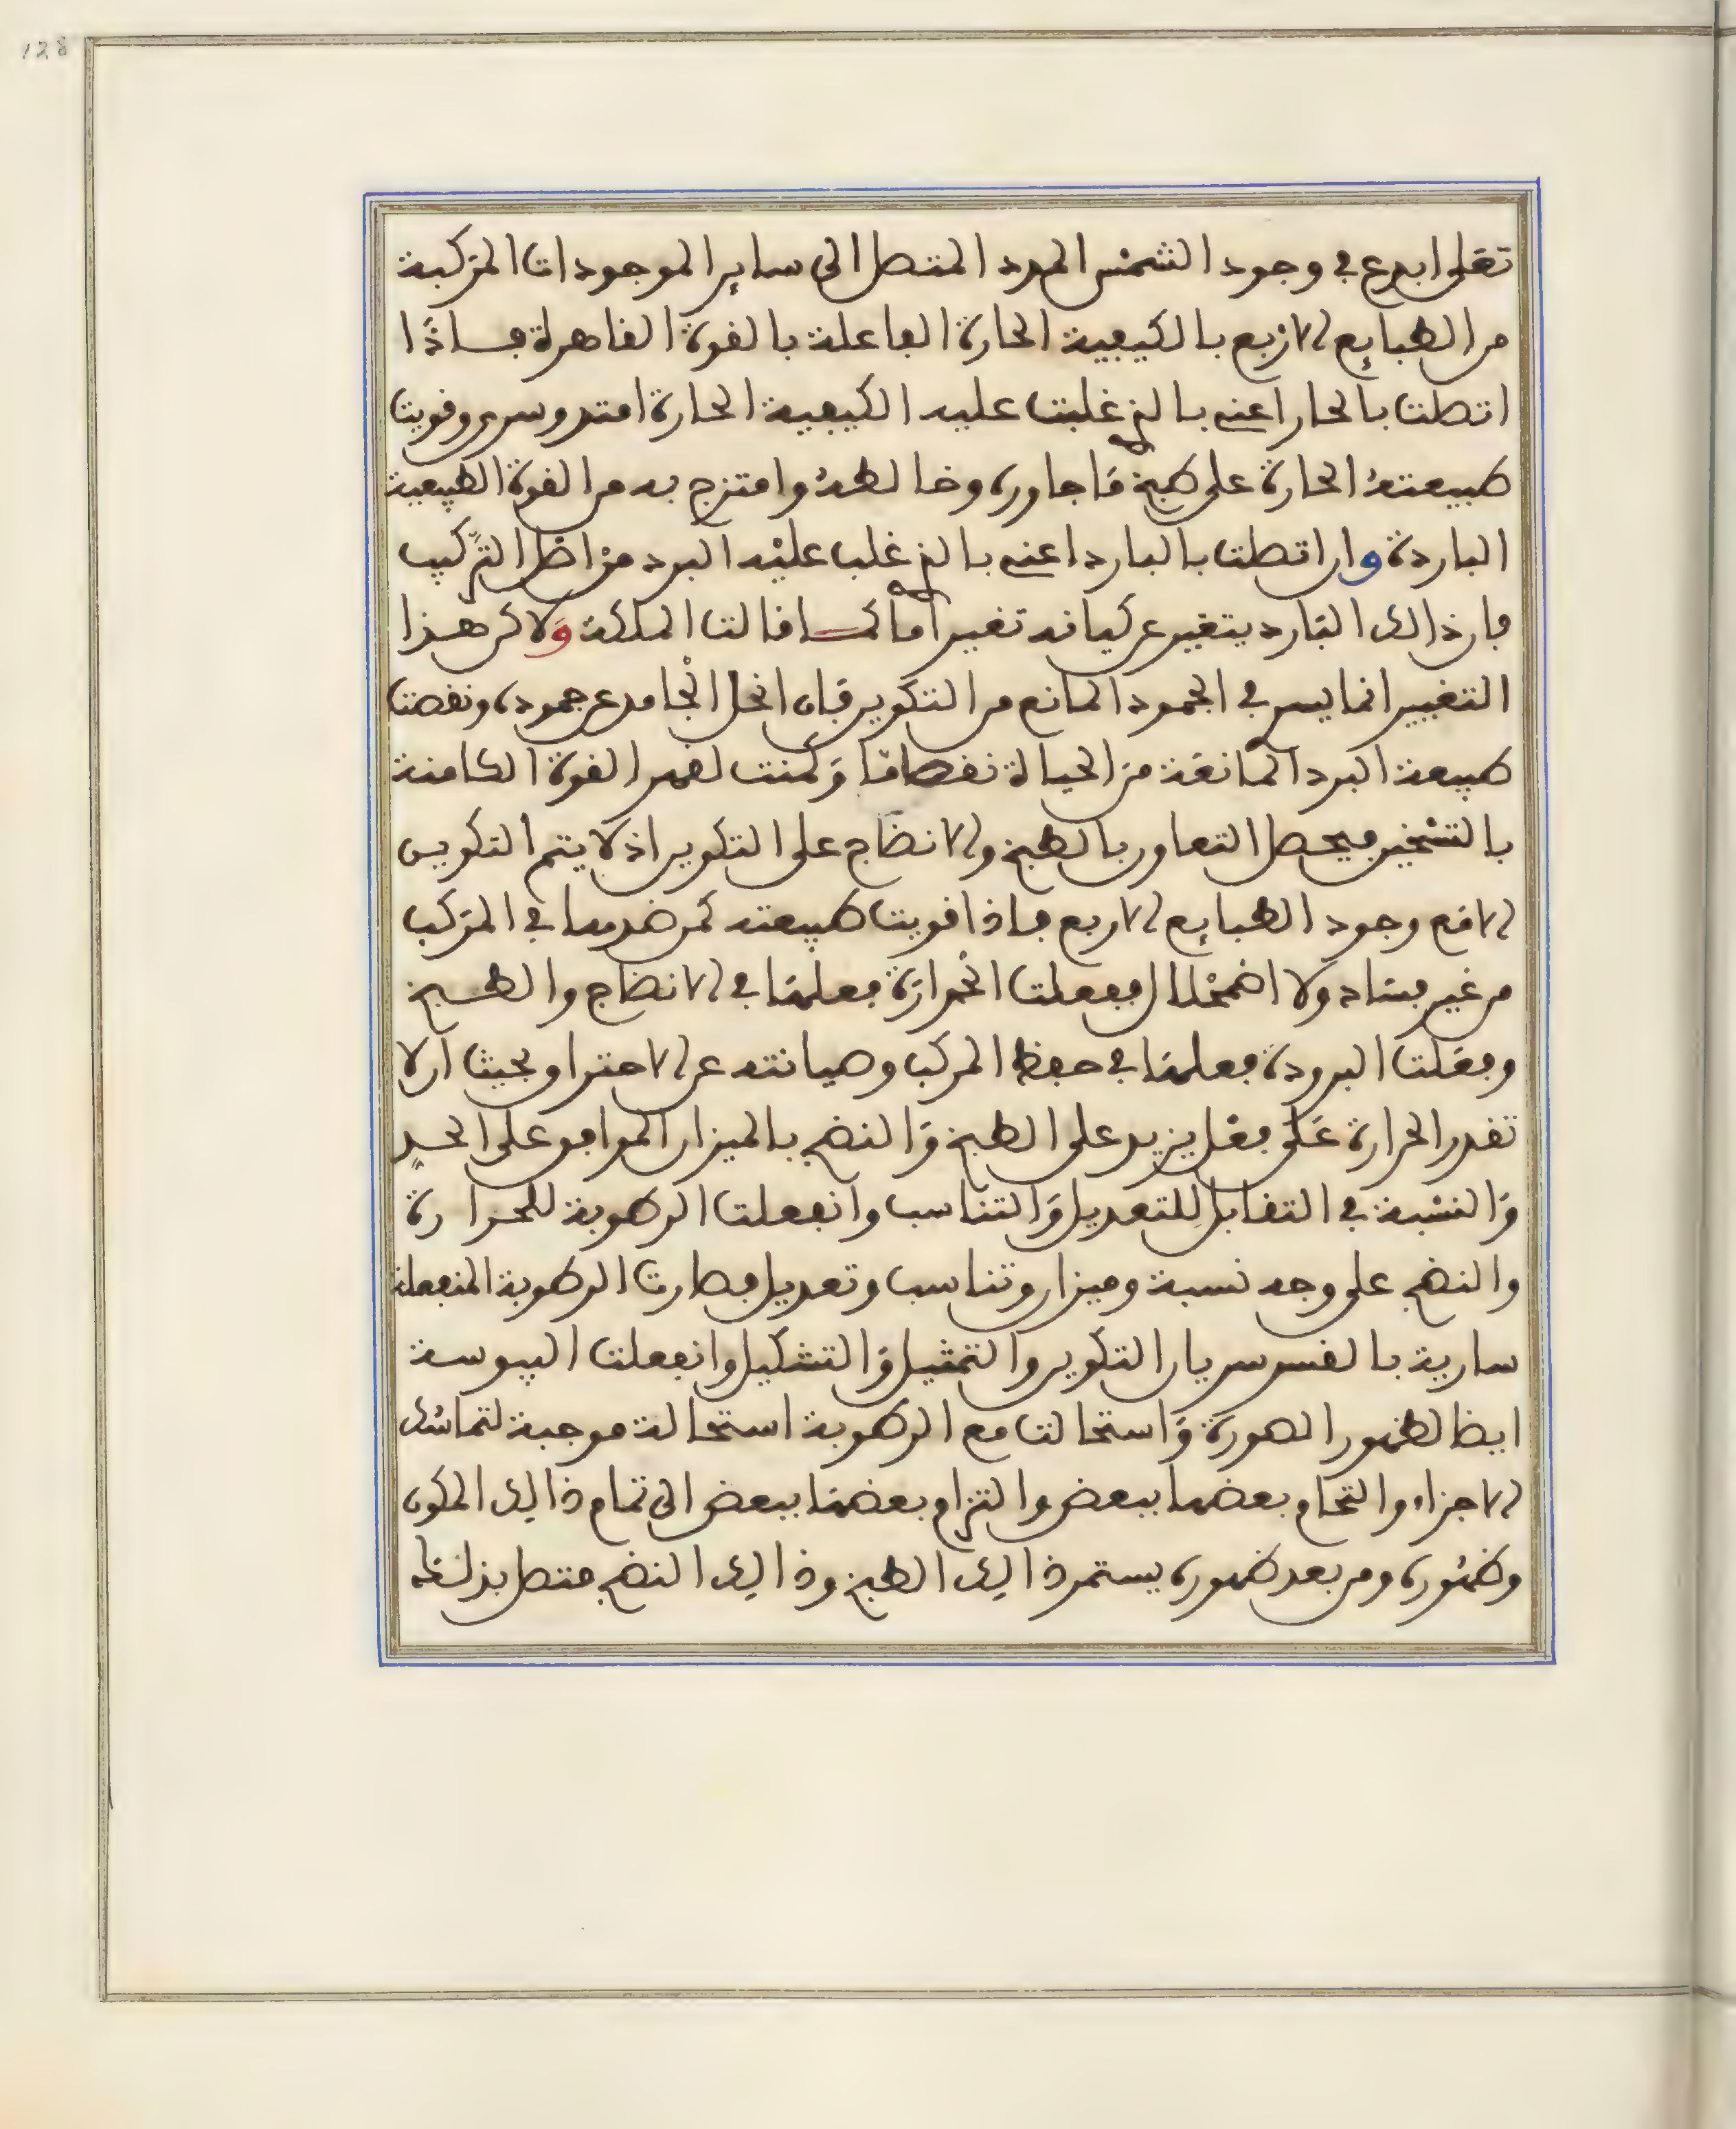 128
تعلى ابدع في وجود الشمس المدد المتصل الى ساير الموجودات المركبة
من الطبايع الاربع بالكيفية الحارة الفاعلة بالقوة القاهرة فاذا
اتصلت بالحار اعني بالذي غلبت عليه الكيفية الحارة امتد وسرى وقويت
طبيعته الحارة على طبخ ما جاوره وخالطه وامتزج به من القوة الطبيعية
الباردة وان اتصلت بالبارد اعني بالذي غلب عليه البرد من اصل التركيب
فان ذالك البارد يتغير عن كيانه تغيرا ما كما قالت الملكة ولاكن هذا
التغيير انما يسري في الجمود المانع من التكوين فان انحل الجامد عن جموده ونقصت
طبيعة البرد المانعة من الحياة نقصا ما وكمنت لقهر القوة الكامنة
بالتسخين فيحصل التعاون بالطبخ والانضاج على التكوين اذ لا يتم التكوين
الا مع وجود الطبايع الاربع فاذا قويت طبيعة كمن ضدها في المركب
من غير فساد ولا اضمحلال ففعلت الحرارة فعلها في الانضاج والطبخ
وفعلت البرودة فعلها في حفظ المركب وصيانته عن الاحتراق بحيث ان لا
تقدر الحرارة على فعل يزيد على الطبخ والنضج بالميزان الموافق على الحد
والنسبة في التقابل للتعديل والتناسب وانفعلت الرطوبة للحرارة
والنضج على وجه نسبة وميزان وتناسب وتعديل فصارت الرطوبة المنفعلة
سارية بالقسر سريان التكوين والتمثيل والتشكيل وانفعلت اليبوسة
ايضا لظهور الصورة واستحالت مع الرطوبة استحالة موجبة لتماسك
الاجزاء والتحام بعضها ببعض والتزام بعضها ببعض الى تمام ذالك المكون
وظهوره ومن بعد ظهوره يستمر ذالك الطبخ وذالك النضج متصل بذلك